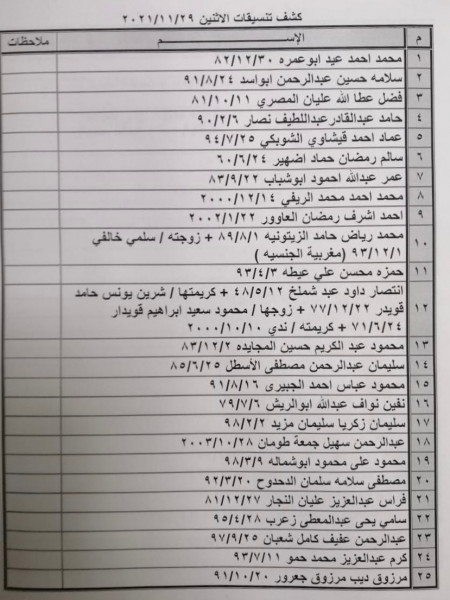 كشف تنسيقات الاثنين ٢٠٢١/١١/٢٩
م الإســـم ملاحظات
١ محمد احمد عيد ابوعمره ٨٢/١٢/٣٠
٢ سلامه حسين عبدالرحمن ابواسد ٩١/٨/٢٤
٣ فضل عطا الله عليان المصري ٨١/١٠/١١
٤ حامد عبدالقادرعبداللطيف نصار ٩٠/٢/٦
٥ عماد احمد قيشاوي الشوبكي ٩٤/٧/٢٥
٦ سالم رمضان حماد اضهير ٦٠/٦/٢٤
٧ عمر عبدالله احمود ابوشباب ٨٣/٩/٢٢
٨ محمد احمد محمد الريفي ٢٠٠٠/١٢/١٤
٩ احمد اشرف رمضان العاوور ٢٠٠٢/١/٢٢
١٠ محمد رياض حامد الزيتونيه ٨٩/٨/١ + زوجته / سلمي خالفي
٩٣/١٢/١ (مغربية الجنسيه )
١١ حمزه محسن علي عيطه ٩٣/٤/٣
١٢ انتصار داود عبد شملخ ٤٨/٥/١٢ + كريمتها / شرين يونس حامد
قويدر ٧٧/١٢/٢٢ + زوجها / محمود سعيد ابراهيم قويدار
٧١/٦/٢٤ + كريمته / ندي ٢٠٠٠/١٠/١٠
١٣ محمود عبد الكريم حسين المجايده ٨٣/١٢/٢
١٤ سليمان عبدالرحمن مصطفى الأسطل ٨٥/٦/٢٥
١٥ محمود عباس احمد الجبيرى ٩١/٨/١٦
١٦ نفين نواف عبدالله ابوالريش ٧٩/٧/٦
١٧ سليمان زكريا سليمان مزيد ٩٨/٢/٢
١٨ عبدالرحمن سهيل جمعة طومان ٢٠٠٣/١٠/٢٨
١٩ محمود على محمود ابوشماله ٩٨/٣/٩
٢٠ مصطفى سلامه سلمان الدحدوح ٩٢/٣/٢٠
٢١ فراس عبدالعزيز عليان النجار ٨١/١٢/٢٧
٢٢ سامي يحى عبدالمعطى زعرب ٩٥/٤/٢٨
٢٣ عبدالرحمن عفيف كامل شعبان ٩٧/٩/٢٥
٢٤ كرم عبدالعزيز محمد حمو ٩٣/٧/١١
٢٥ مرزوق ديب مرزوق جعرور ٩١/١٠/٢٠